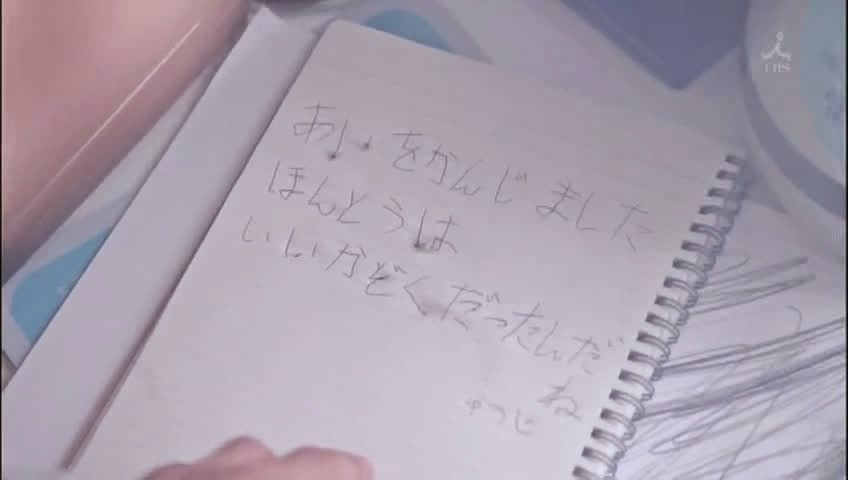 あいをかんじました
ほんとうは
いいかぞくだったんだ
ね
TBS